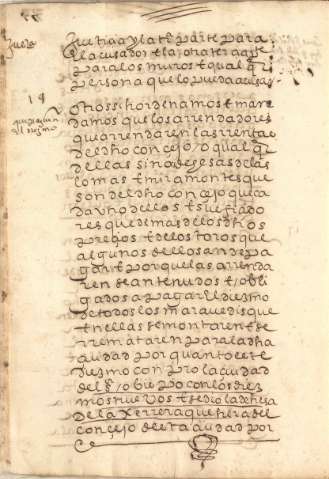 Juez
Justicia y la tra parte para
el acusador e la otra tercia pte
para los muros e qual quier
persona que lo pueda acusar
18
que paguen
el diezmo
Otrossi hordenamos e man
damos que los arrendadores
que arrendaren las rrentas
del dho concejo, o qual quier
dellas si no desesas de las
lomas e miramontes que
son del dho concejo que ca
da uno dellos e sus fiado
res que demas de los dhos
preçios e de los toros que
algunos dellos an de pa
gar e por que las arrenda
ren sean tenudos e obli
gados a pagar el diezmo
de todos los maravedis que
en ellas se montaren e se
rremataren para la dha
ciudad por quanto este
diezmo conpro la ciudad
del Rey, obispo con los diez
mos nuevos e se dio la dehesa
de la Xerrera que hera del
conçejo desta ciudad por